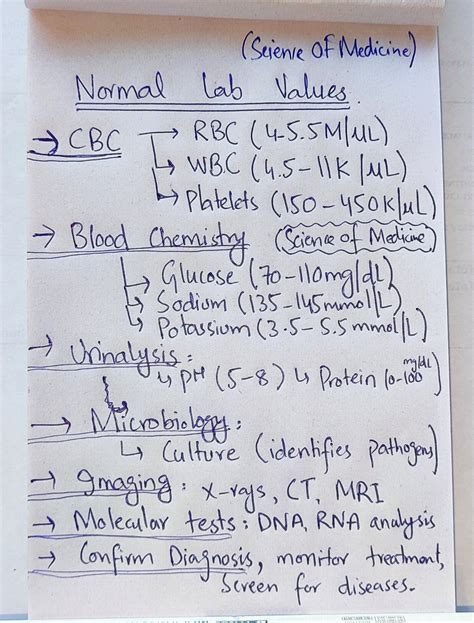 (Science Of Medicine)
Normal Lab Values.
→ CBC → RBC (4-5.5M/μL)
↳ WBC (4.5-11K/μL)
↳ Platelets (150-450K/μL)
→ Blood Chemistry (Science of Medicine)
↳ Glucose (70-110mg/dL)
↳ Sodium (135-145mmol/L)
↳ Potassium (3.5-5.5mmol/L)
→ Urinalysis:
↳ pH (5-8) ↳ Protein (0-100 mg/dL)
→ Microbiology:
↳ Culture (identifies pathogens)
→ Imaging: X-rays, CT, MRI
→ Molecular tests: DNA, RNA analysis
→ Confirm Diagnosis, monitor treatment,
Screen for diseases.